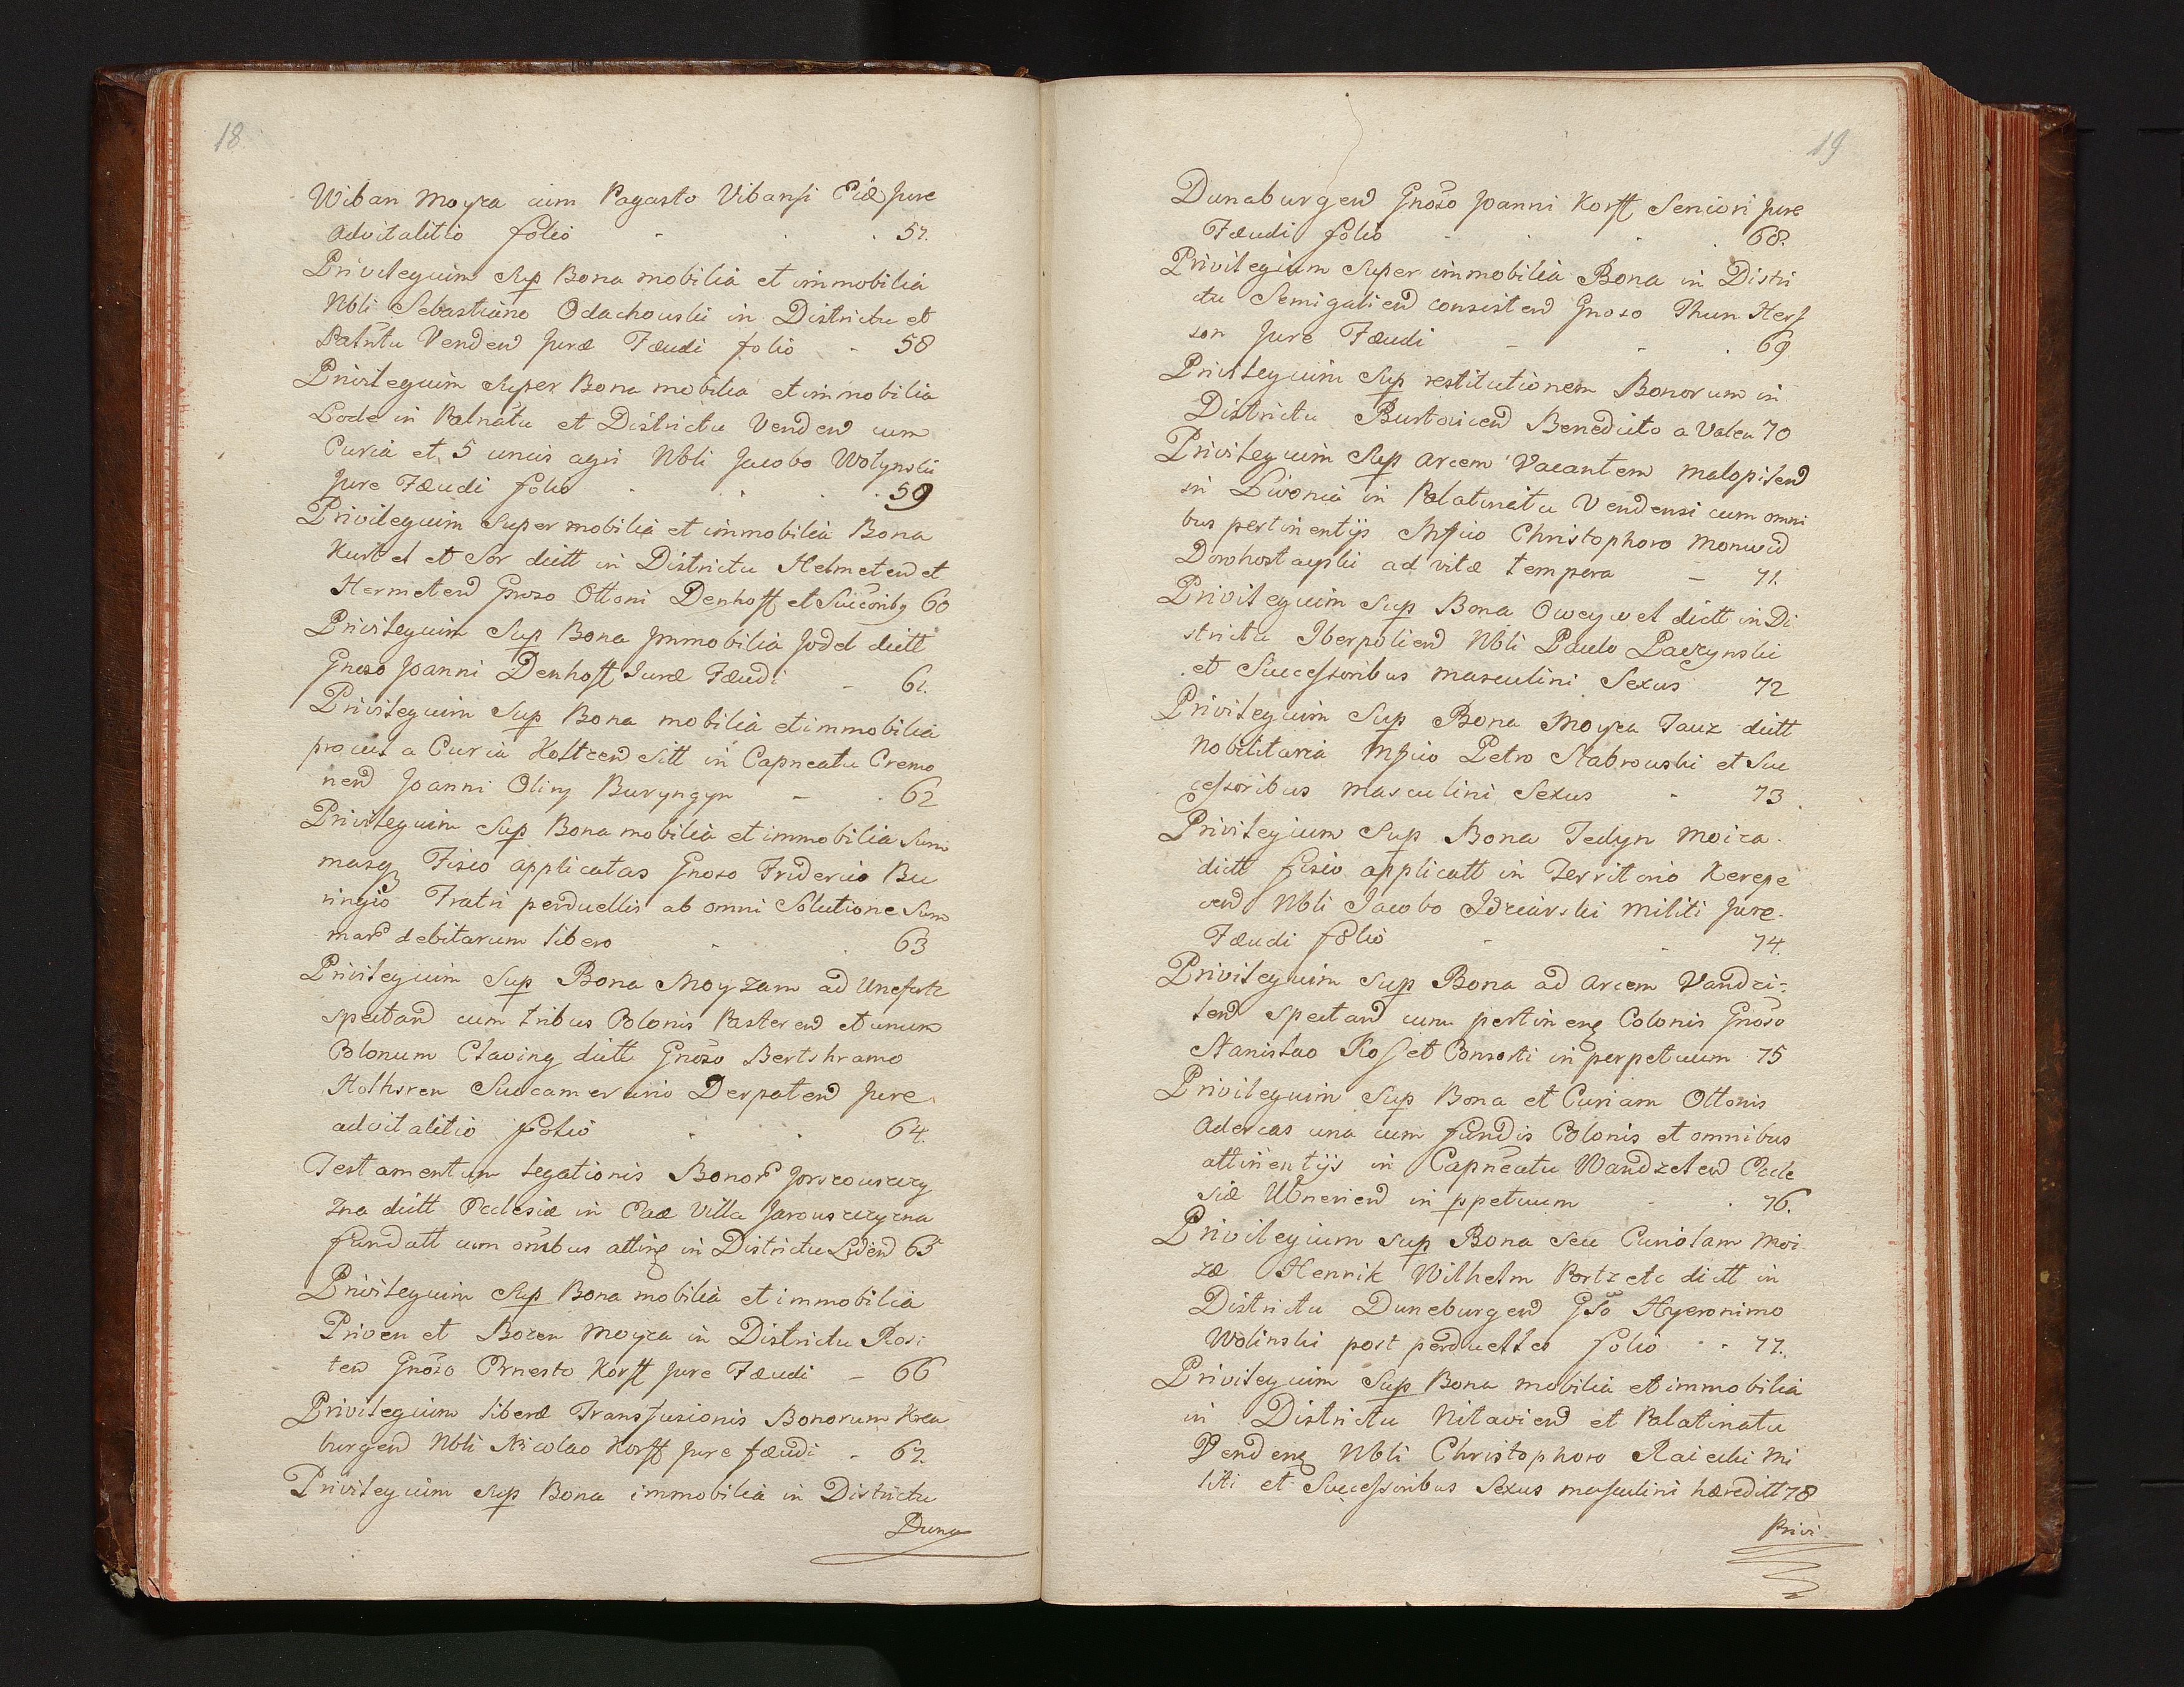 18
Wiban Moyza cum Pagasto Vibansi Eidæ Jure
advitalitio folio - . . 57.
Privilegium Sup Bona mobilia et immobilia
Nbli Sebastiano Odachouski in Districtu et
Palntu Venden Juræ Fæudi folio - 58
Privilegium Super Bona mobilia et immobilia
Lode in Palnatu et Districtu Venden cum
Curia et 5 uncis agri Nbli Jacobo Wolynski
Jure Fæudi folio . . . 59
Privilegium Super mobilia et immobilia Bona
Kurtel et Sor dictt in Districtu Helmeten et
Hermeten Gnoso Ottoni Denhoff et Succoribq 60
Privilegium Sup Bona Jmmobilia Jodel dictt
Gnoso Joanni Denhoff Juræ Fæudi - 61.
Privilegium Sup Bona mobilia et immobilia
procul a Curia Holtzen sitt in Capneatu Cremo
nen Joanni Oliny Buryngyn - . 62
Privilegium Sup Bona mobilia et immobilia Sum
masq Fisco applicatas Gnoso Friderico Bu
ringio Fratri perduellis ab omni Solutione Sum
mar debitarum libero - . 63
Privilegium Sup Bona Moyzam ad
spectan cum tribus Colonis Pasteren et unum
Colonum Claving dictt Gnoso Bertshramo
Holhsren Succamerario Derpaten Jure
advitalitio folio . . 64.
Testamentum legationis Bonor
zna dictt Ecclesiæ in Ead Villa
fundatt cum onibus atting in Districtu Liden 65
Privilegium Sup Bona mobilia et immobilia
Priven et Bozen Moyza in Districtu Rosi
ten Gnoso Ernesto Korff Jure Fæudi - 66
Privilegium liberæ Transfusionis Bonorum Kreu
burgen Nbli Nicolao Korff Jure fæudi - 67.
Privilegium Sup Bona immobilia in Districtu
Duna
19
Dunaburgen Gnoso Joanni Korff Seniori Jure
Fæudi folio - . . 68.
Privilegium Super immobilia Bona in Distri
ctu Semigalien consisten Gnoso Thun Herf
son Jure Fæudi - - . 69
Privilegium Sup restitutionem Bonorum in
Districtu Burtnicen Benedicto a Valen 70
Privilegium Sup arcem Vacantem Malopilsen
in Livonia in Palatinatu Vendensi cum omni
bus pertinentijs Mfico Christophoro Monwid
Dorohostayski ad vitæ tempora - 71.
Privilegium Sup Bona Oweywel dictt in Di
strictu Iberpolien Nbli Paulo Paczynski
et Successoribus masculini Sexus 72
Privilegium Sup Bona Moyza Tauz dictt
Nobilitaria Mfico Petro Stabrouski et Suc
cessoribus masculini Sexus - 73.
Privilegium Sup Bona Tedyn Moiza
dictt fisco applicatt in Territorio Kerepe
cen Nbli Jacobo Idziarski militi Jure
Fæudi folio - . 74.
Privilegium Sup Bona ad Arcem Vandzi-
len spectan cum pertineng Colonis Gnoso
Stanislao Kos et Consorti in perpetuum 75
Privilegium Sup Bona et Curiam Ottonis
Adercas una cum fundis Colonis et omnibus
attinentijs in Capneatu Wandzelen Eccle
siæ Ubnerien in ppetuum - . 76.
Privilegium sup Bona seu Curiolam Moi
zæ Henrik Wilhelm Portz etc dictt in
Districtu Duneburgen Gso Hyeronimo
Wolinski post perduelles folio - 77.
Privilegium Sup Bona mobilia et immobilia
in Districtu Nitavien et Palatinatu
Vendeng Nbli Christophoro Raiecki Mi
liti et Successoribus Sexus masculini hæreditt 78
Privi